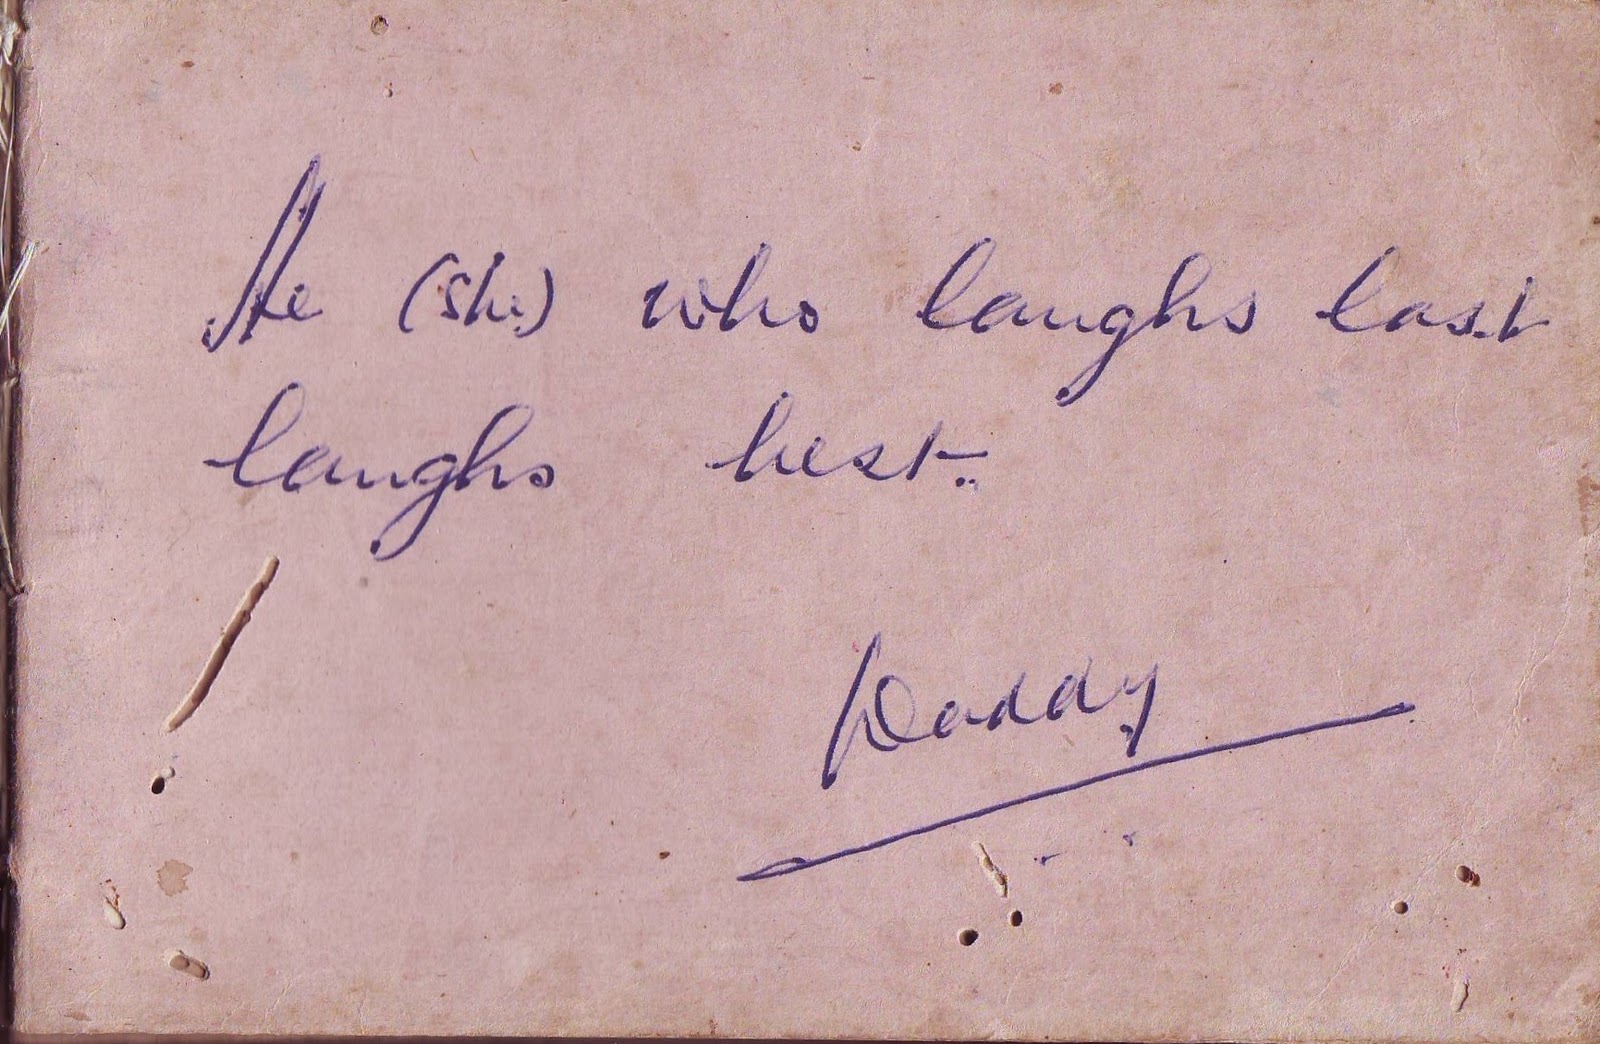 He (she) who laughs last
laughs best.
Daddy